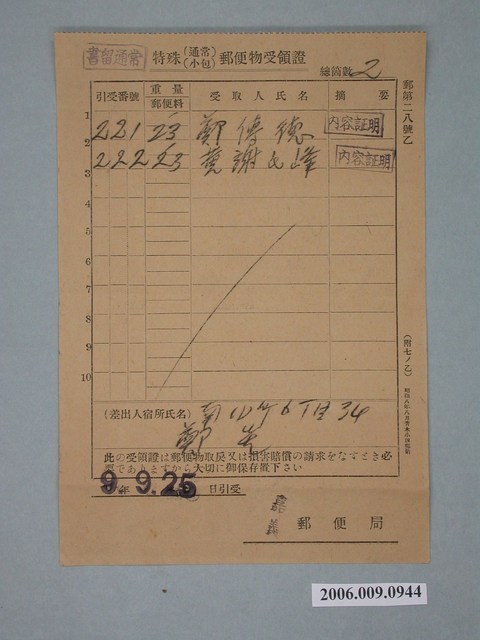 書留通常
特殊(通常 小包)郵便物受領證
總箇數 2
引受番號 重量 郵便料 受取人氏名 摘要
1 221 23 鄭傳德 內容証明
2 222 23 黄謝氏峰 內容証明
3
4
5
6
7
8
9
10
(差出人宿所氏名)
丁目 34
鄭
此の受領證は郵便物取戾又は損害賠償の請求をなすとき必
要でありますから大切に御保存置下さい
9年 9.25 日引受
嘉義 郵便局
郵第二八號乙
(附七ノ乙)
2006.009.0944